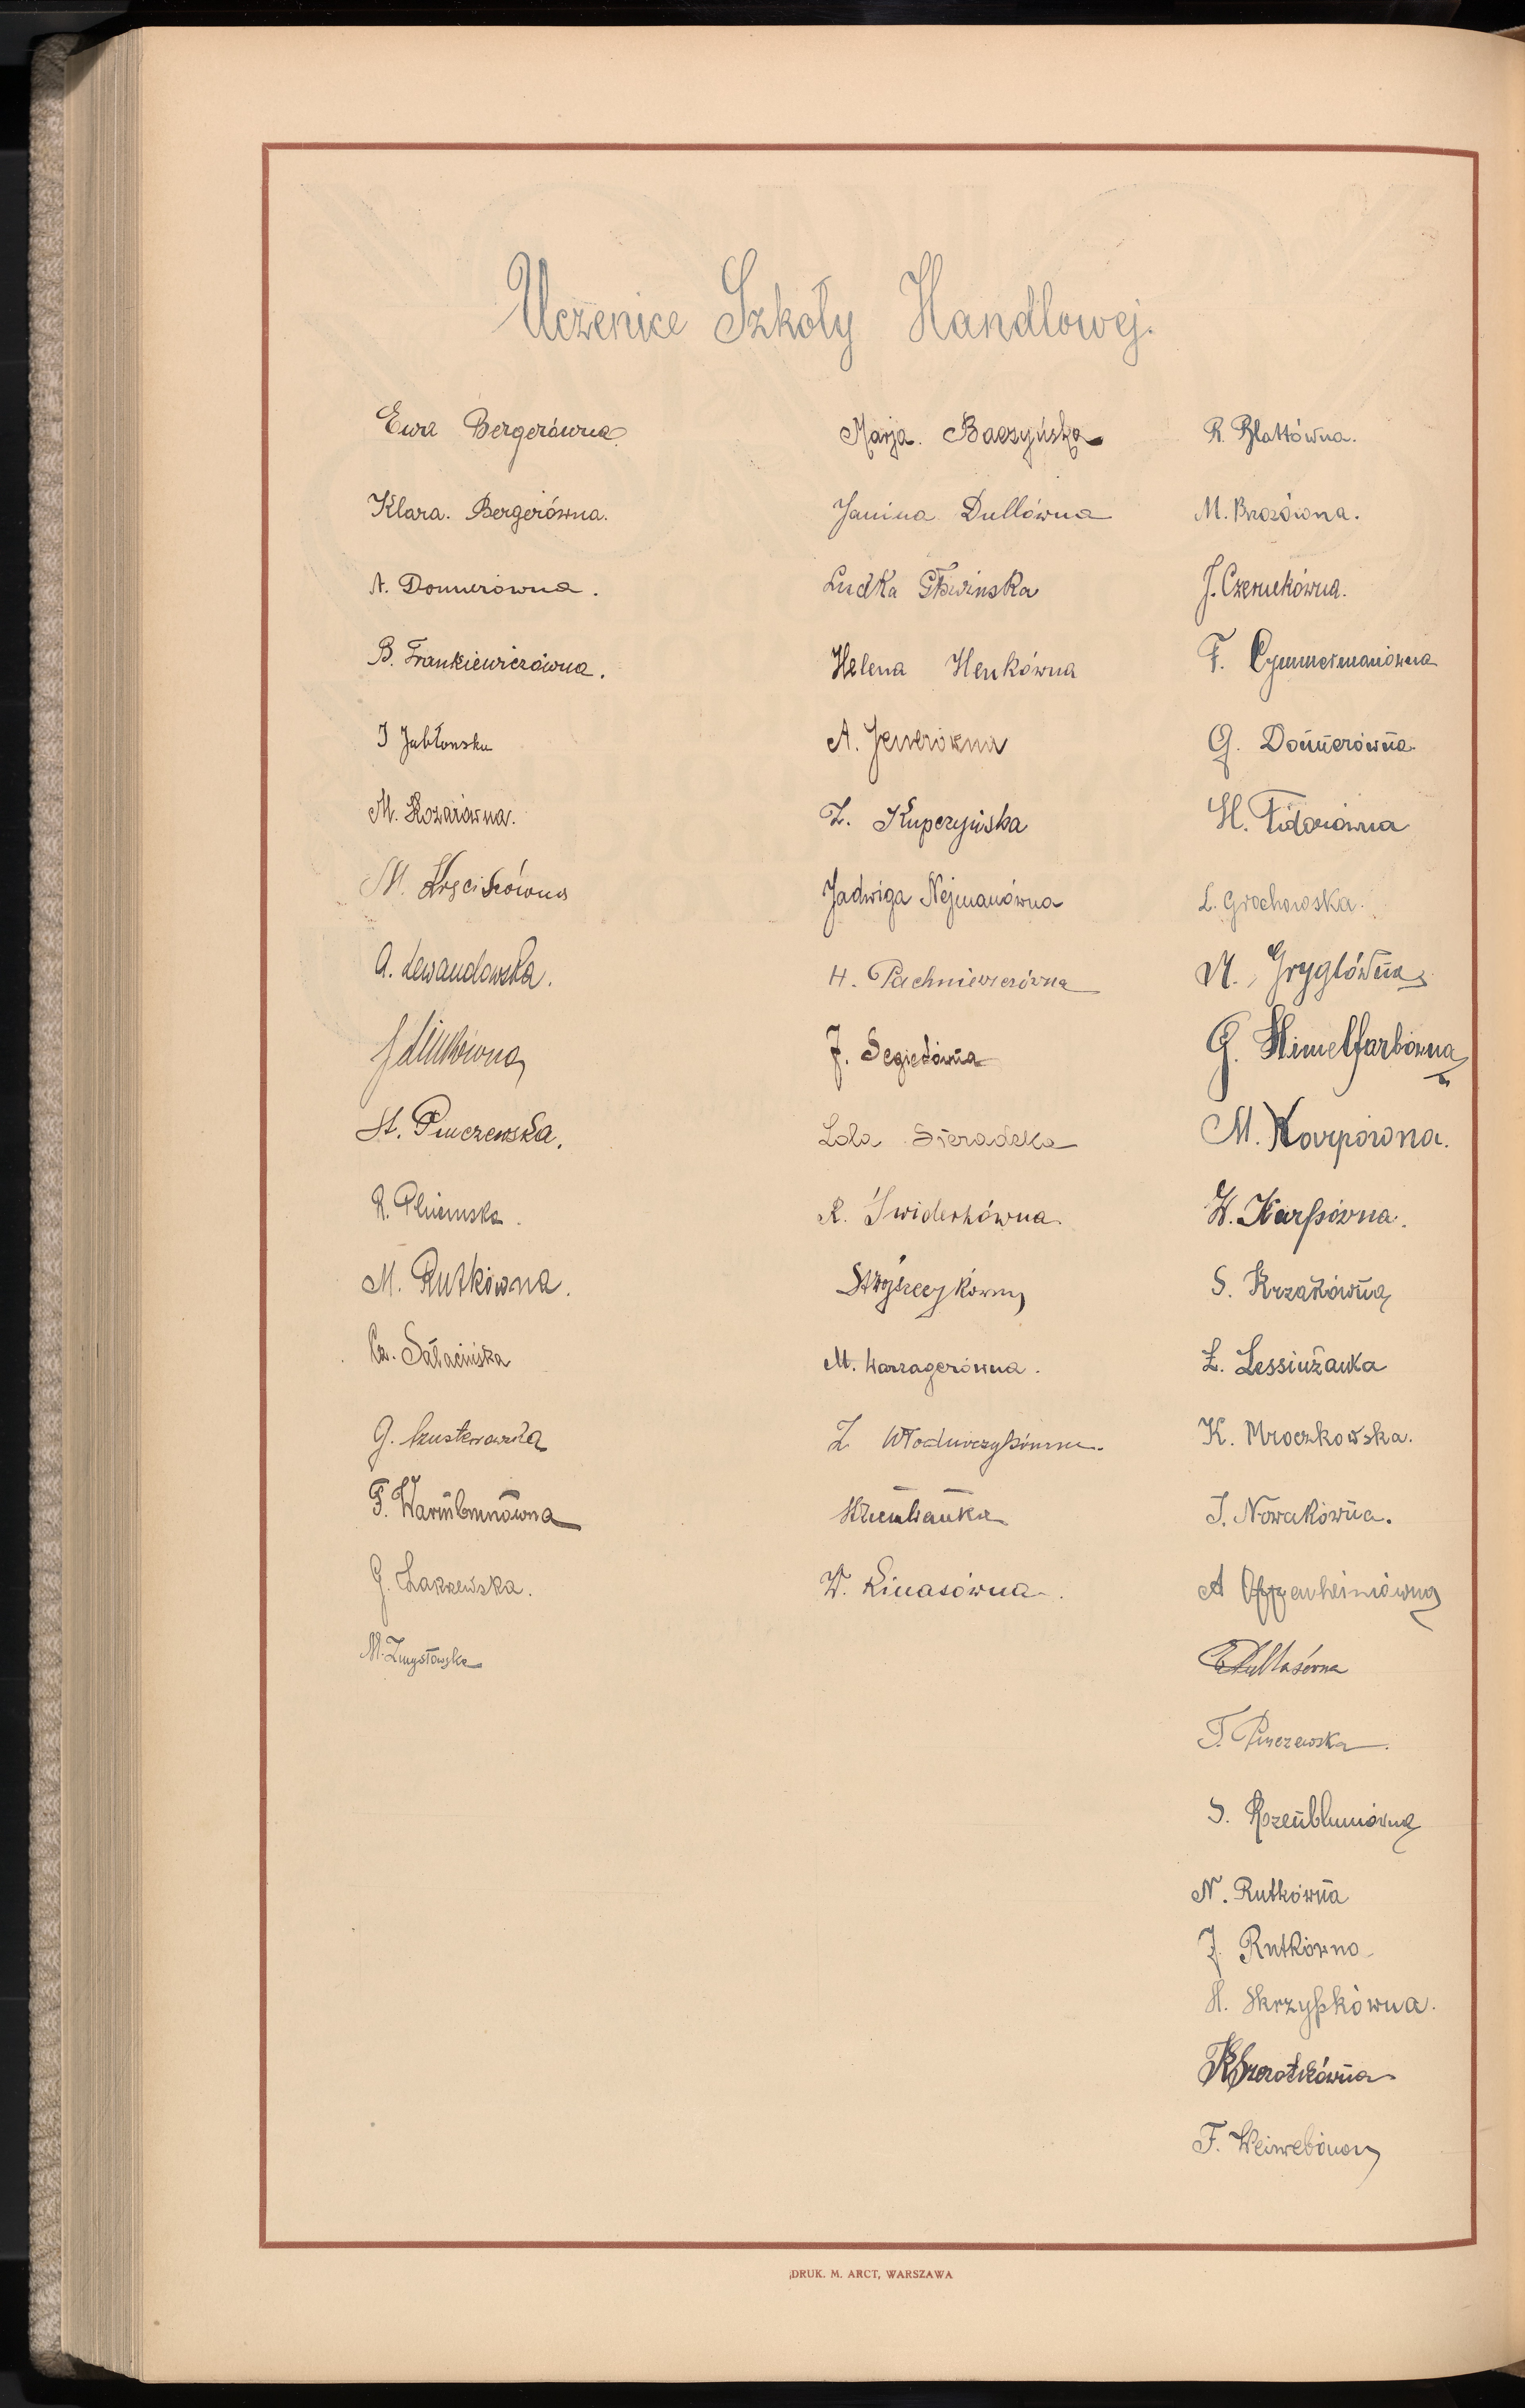 Uczenice Szkoły Handlowej.
Ewa Bergerówna
Klara. Bergerówna.
A. Donnerówna.
B. Frankiewiczówna.
J Jabłonska
M. Kozarówna.
M.
A. Lewandowska.
J Linkówna
St. Pinczewska.
R.
M. Rutkówna.
Cz. Sałacińska
G. Szusterowska
F. Warmbrunówna
G. Zakrzewska.
M. Zmysłowska
Marja. Baczyńska
Janina Dullówna
Ludka Głowinska
Helena Henkówna
A. Jenerówna
Z. Kupczyńska
Jadwiga Nejmanówna
H. Pachniewiczówna
J. Segietówna
Lola Sieradzka
R. Świderkówna.
M. Warzagerówna.
Z Włodarczykówna.
W. Linasówna.
R. Blattówna.
M. Brozówna.
J. Czernekówna.
F. Cymmermanówna
G. Donnerówna.
H. Fidorówna
L. Grochowska.
M. Gryglówna
G. Himelfarbówna
M. Karpówna.
W. Karpówna.
S. Krzakówna
Z. Lessinżanka
K. Mroczkowska.
J. Nowakówna.
A Oppenheimówna
T. Pinczewska.
S. Rozenblumówna
N. Rutkówna
J. Rutkówna
H. Skrzypkówna.
DRUK. M. ARCT, WARSZAWA